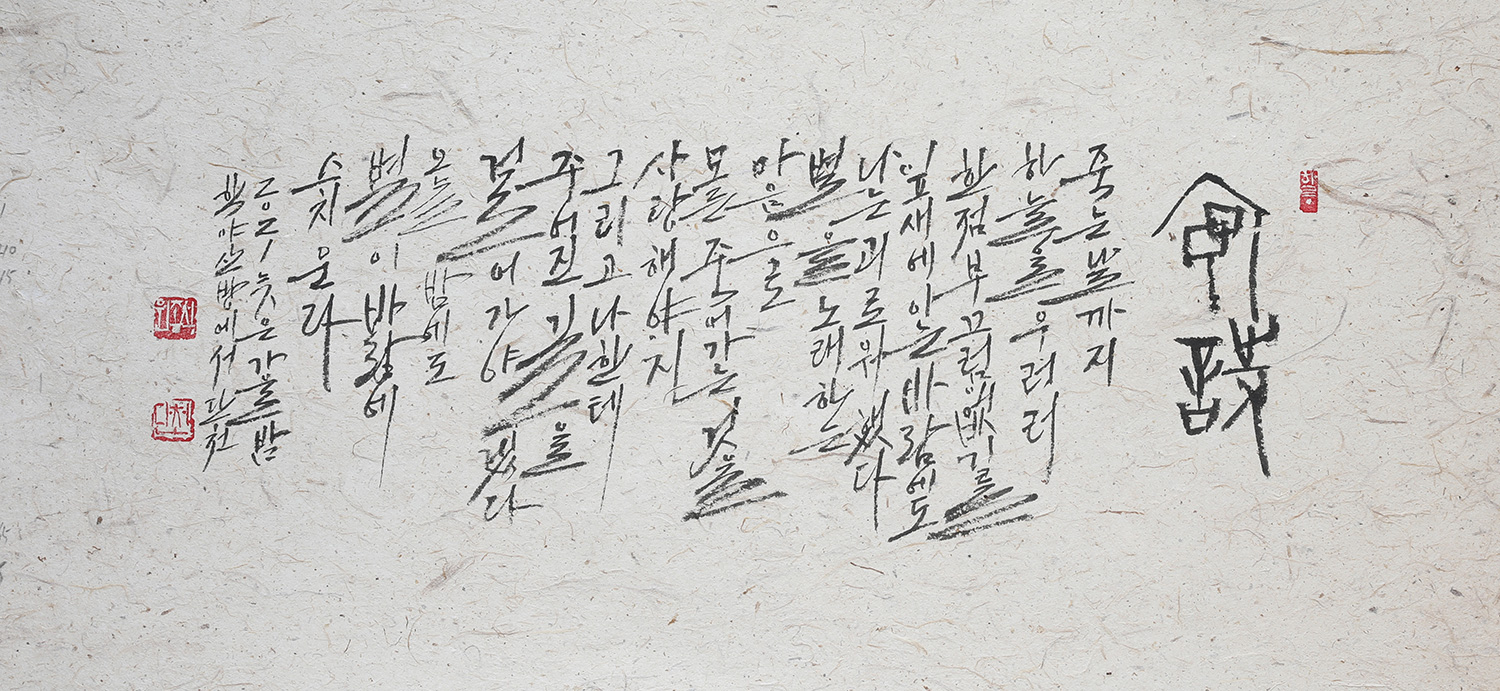 序詩
죽는 날까지
하늘을 우러러
한 점 부끄럼 없기를
잎새에 이는 바람에도
나는 괴로워했다
별을 노래하는
마음으로
모든 죽어가는 것을
사랑해야지
그리고 나한테
주어진 길을
걸어가야겠다
오늘 밤에도
별이 바람에
스치운다
2021 늦은 가을 밤
에서 단천
단천